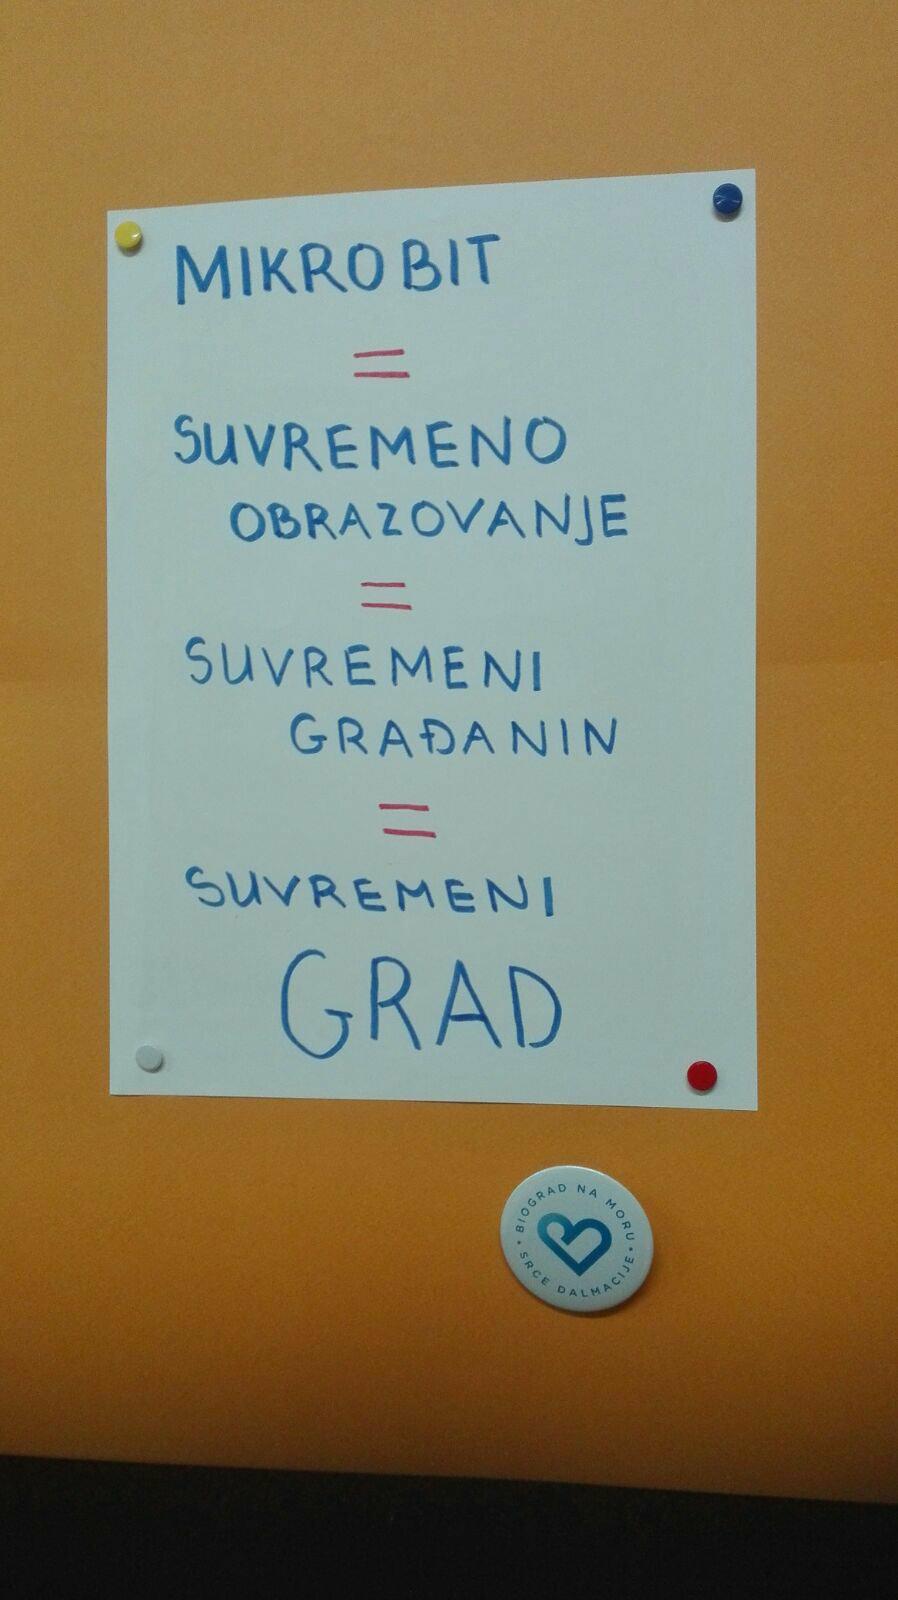 MIKROBIT
=
SUVREMENO
OBRAZOVANJE
=
SUVREMENI
GRAĐANIN
=
SUVREMENI
GRAD
• BIOGRAD NA MORU •
SRCE DALMACIJE